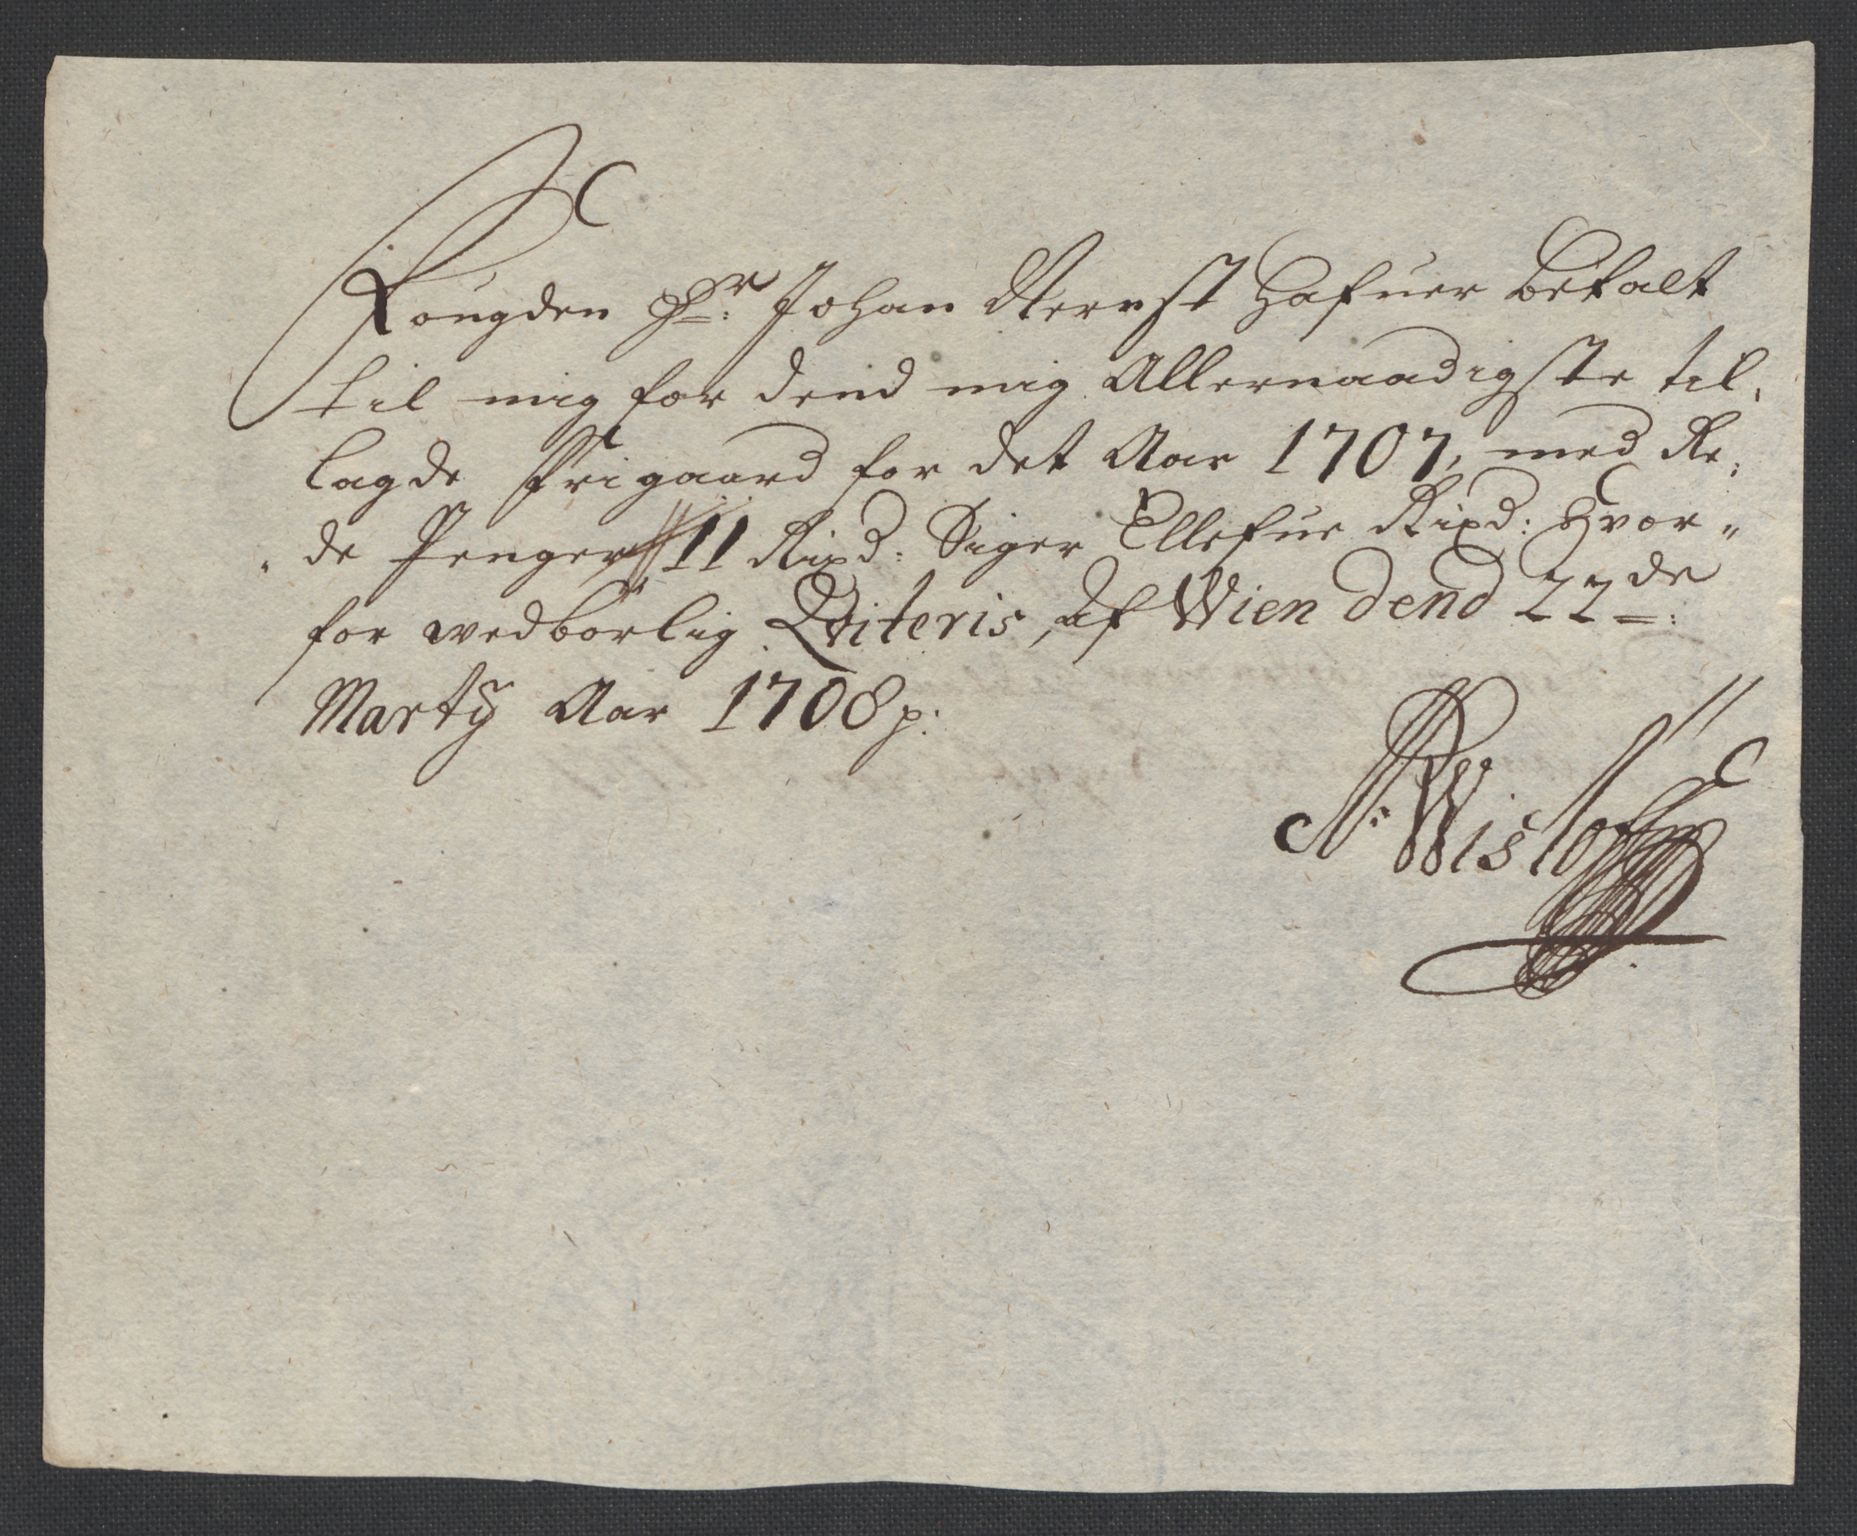 Fougden Hr: Johan Hernst Hafuer betalt
til mig for dend mig Allernaadigste til,
lagde Frigaard for det Aar 1707, med Re,
de Penger 11 Rixd: Siger Ellefue Rixd: Hvor„
for wedbørlig Qviteris, Af Wien dend 22de:
Marty Aar 1708 p:
Wisløff